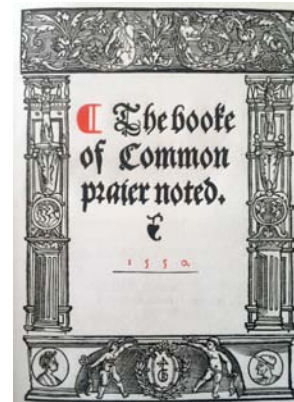 ¶ The booke
of Common
praier noted.
1550